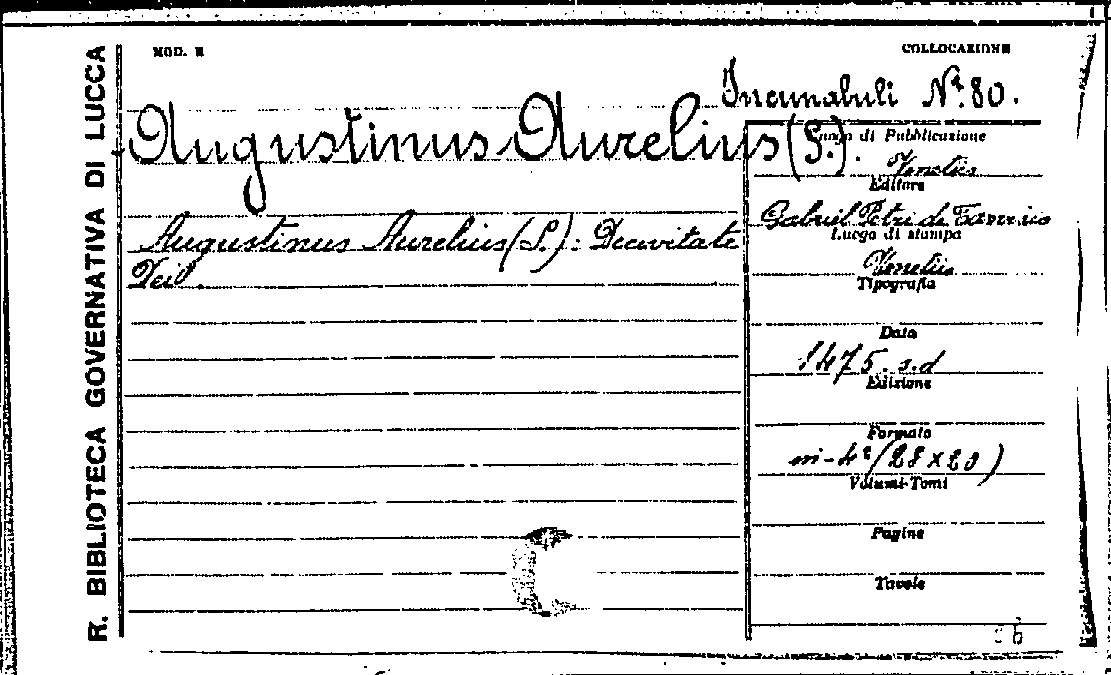 R. BIBLIOTECA GOVERNATIVA DI LUCCA
MOD. E
COLLOCAZIONE
Incunabuli Nº. 80.
Augustinus Aurelius (S.).
Augustinus Aurelius (S.): De civitate
Dei.
Luogo di Pubblicazione
Venetiis
Editore
Gabriel Petri de Tarvisio
Luogo di stampa
Venetiis
Tipografia
Data
1475. s.d
Edizione
Formato
in-4º (28 x 20)
Volumi-Tomi
Pagine
Tavole